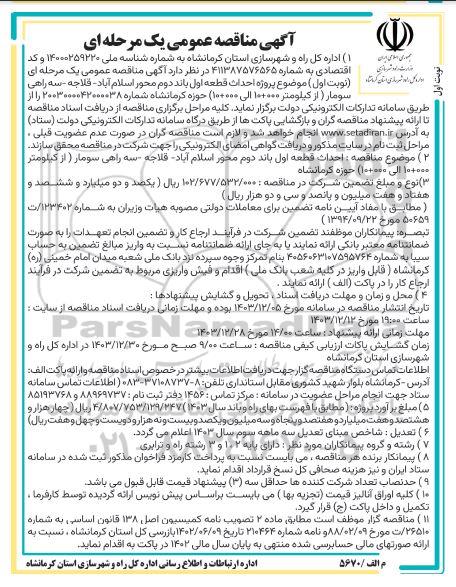 آگهی مناقصه عمومی یک مرحله ای
نوبت اول
جمهوری اسلامی ایران
وزارت راه و شهرسازی
اداره کل راه و شهرسازی استان کرمانشاه
۱) اداره کل راه و شهرسازی استان کرمانشاه به شماره شناسه ملی ۱۴۰۰۰۲۵۹۲۲۰ و کد
اقتصادی به شماره ۴۱۱۳۸۷۵۷۶۵۶۵ در نظر دارد آگهی مناقصه عمومی یک مرحله ای
(نوبت اول) موضوع پروژه احداث قطعه اول باند دوم محور اسلام آباد- قلاجه -سه راهی
سومار ( از کیلومتر ۰۰۰+۱۰ الی ۰۰۰+۱۰) حوزه کرمانشاه شماره ۲۰۰۳۰۰۰۰۴۲۰۰۰۰۳۸ را از
طریق سامانه تدارکات الکترونیکی دولت برگزار نماید. کلیه مراحل برگزاری مناقصه از دریافت اسناد مناقصه
تا ارائه پیشنهاد مناقصه گران و بازگشایی پاکت ها از طریق درگاه سامانه تدارکات الکترونیکی دولت (ستاد)
به آدرس www.setadiran.ir انجام خواهد شد و لازم است مناقصه گران در صورت عدم عضویت قبلی ،
مراحل ثبت نام در سایت مذکور و دریافت گواهی امضای الکترونیکی را جهت شرکت در مناقصه محقق سازند.
۲ ) موضوع مناقصه : احداث قطعه اول باند دوم محور اسلام آباد- قلاجه -سه راهی سومار ( از کیلومتر
۰۰۰+۱۰ الی ۰۰۰+۱۰) حوزه کرمانشاه
۳)نوع و مبلغ تضمین شرکت در مناقصه : ۱۰۲/۶۷۷/۵۳۲/۰۰۰ ریال ( یکصد و دو میلیارد و ششصد و
هفتاد و هفت میلیون و پانصد و سی و دو هزار ریال )
( مطابق با مفاد آیین نامه تضمین برای معاملات دولتی مصوبه هیات وزیران به شماره ۱۲۳۴۰۲/ت
۵۰۶۵۹ مورخ ۱۳۹۴/۰۹/۲۲ )
تبصره: پیمانکاران موظفند تضمین شرکت در فرآیند ارجاع کار و تضمین انجام تعهدات را به صورت
ضمانتنامه معتبر بانکی ارائه نمایند یا به جای ارائه ضمانتنامه نسبت به واریز مبالغ تضمین به حساب
سیبا به شماره ۴۰۵۶۰۶۳۱۰۷۵۹۵۷۶۴ بنام تمرکز وجوه سپرده نزد بانک ملی شعبه میدان امام خمینی (ره)
کرمانشاه ( قابل واریز در کلیه شعب بانک ملی ) اقدام و فیش واریزی مربوط به تضمین شرکت در فرآیند
ارجاع کار را در پاکت (الف ) ارائه نمایند .
۴ ) محل و زمان و مهلت دریافت اسناد ، تحویل و گشایش پیشنهادها :
تاریخ انتشار مناقصه در سامانه مورخ ۱۴۰۳/۱۲/۰۵ بوده و مهلت زمانی دریافت اسناد مناقصه از سایت :
ساعت ۱۹:۰۰ مورخ ۱۴۰۳/۱۲/۱۲
مهلت زمانی ارائه پیشنهاد : ساعت ۱۴/۰۰ مورخ ۱۴۰۳/۱۲/۲۸
زمان گشایش پاکات ارزیابی کیفی مناقصه : ساعت ۹/۰۰ صبح مورخ ۱۴۰۳/۱۲/۳۰ در اداره کل راه و
شهرسازی استان کرمانشاه
اطلاعات تماس دستگاه مناقصه گزار جهت دریافت اطلاعات بیشتر در خصوص اسناد مناقصه و ارائه پاکت الف:
آدرس -کرمانشاه بلوار شهید کشوری مقابل استانداری تلفن: ۸-۳۷۱۰۸۷۳۷-۰۸۳ ( اطلاعات تماس سامانه
ستاد جهت انجام مراحل عضویت در سامانه : مرکز تماس : ۱۴۵۶ دفتر ثبت نام : ۸۸۹۶۹۷۳۷ و ۸۵۱۹۳۷۶۸
۵) مبلغ برآورد پروژه : (مطابق با فهرست بهای راه و باند سال ۱۴۰۳) ۴/۸۰۷/۷۵۳/۱۲۹/۲۴۷ ریال (چهار هزار و
هشتصد و هفت میلیارد و هفتصد و پنجاه و سه میلیون و یکصد و بیست و نه هزار و دویست و چهل و هفت ریال)
۶) تعدیل : شاخص مبنای تعدیل سه ماهه سوم سال ۱۴۰۳ اعلام می گردد.
۷ ) رشته و گروه پیمانکاران مورد نظر : دارای پایه ۱،۲ و ۳ رشته راه و ترابری
۸ ) پیمانکار برنده هر مناقصه ، می بایست نسبت به پرداخت کارمزد فراخوان مذکور ثبت شده در سامانه
ستاد ایران و نیز هزینه صحافی کل نسخ قرارداد اقدام نماید.
۹ ) حدنصاب تعداد شرکت کننده ها حداقل سه (۳) پیشنهاد قیمت قابل قبول می باشد.
۱۰ ) کلیه اوراق آنالیز قیمت (تجزیه بها ) می بایست براساس پیش نویس ارائه گردیده توسط کارفرما ،
تکمیل و داخل پاکت (ج) قرار گیرد.
۱۱ ) مناقصه گزار موظف است مطابق ماده ۲ تصویب نامه کمیسیون اصل ۱۳۸ قانون اساسی به شماره
۲۶۵۱۰/ت مورخ ۸۸/۰۲/۰۹و نامه شماره ۲۱۰۴۶۴ تاریخ ۱۴۰۲/۰۶/۰۹بازرسی کل استان کرمانشاه ، نسبت به
ارائه صورتهای مالی حسابرسی شده منتهی به پایان سال مالی ۱۴۰۲ در پاکت به اقدام نماید.
م الف /۵۶۷۰
اداره ارتباطات و اطلاع رسانی اداره کل راه و شهرسازی استان کرمانشاه